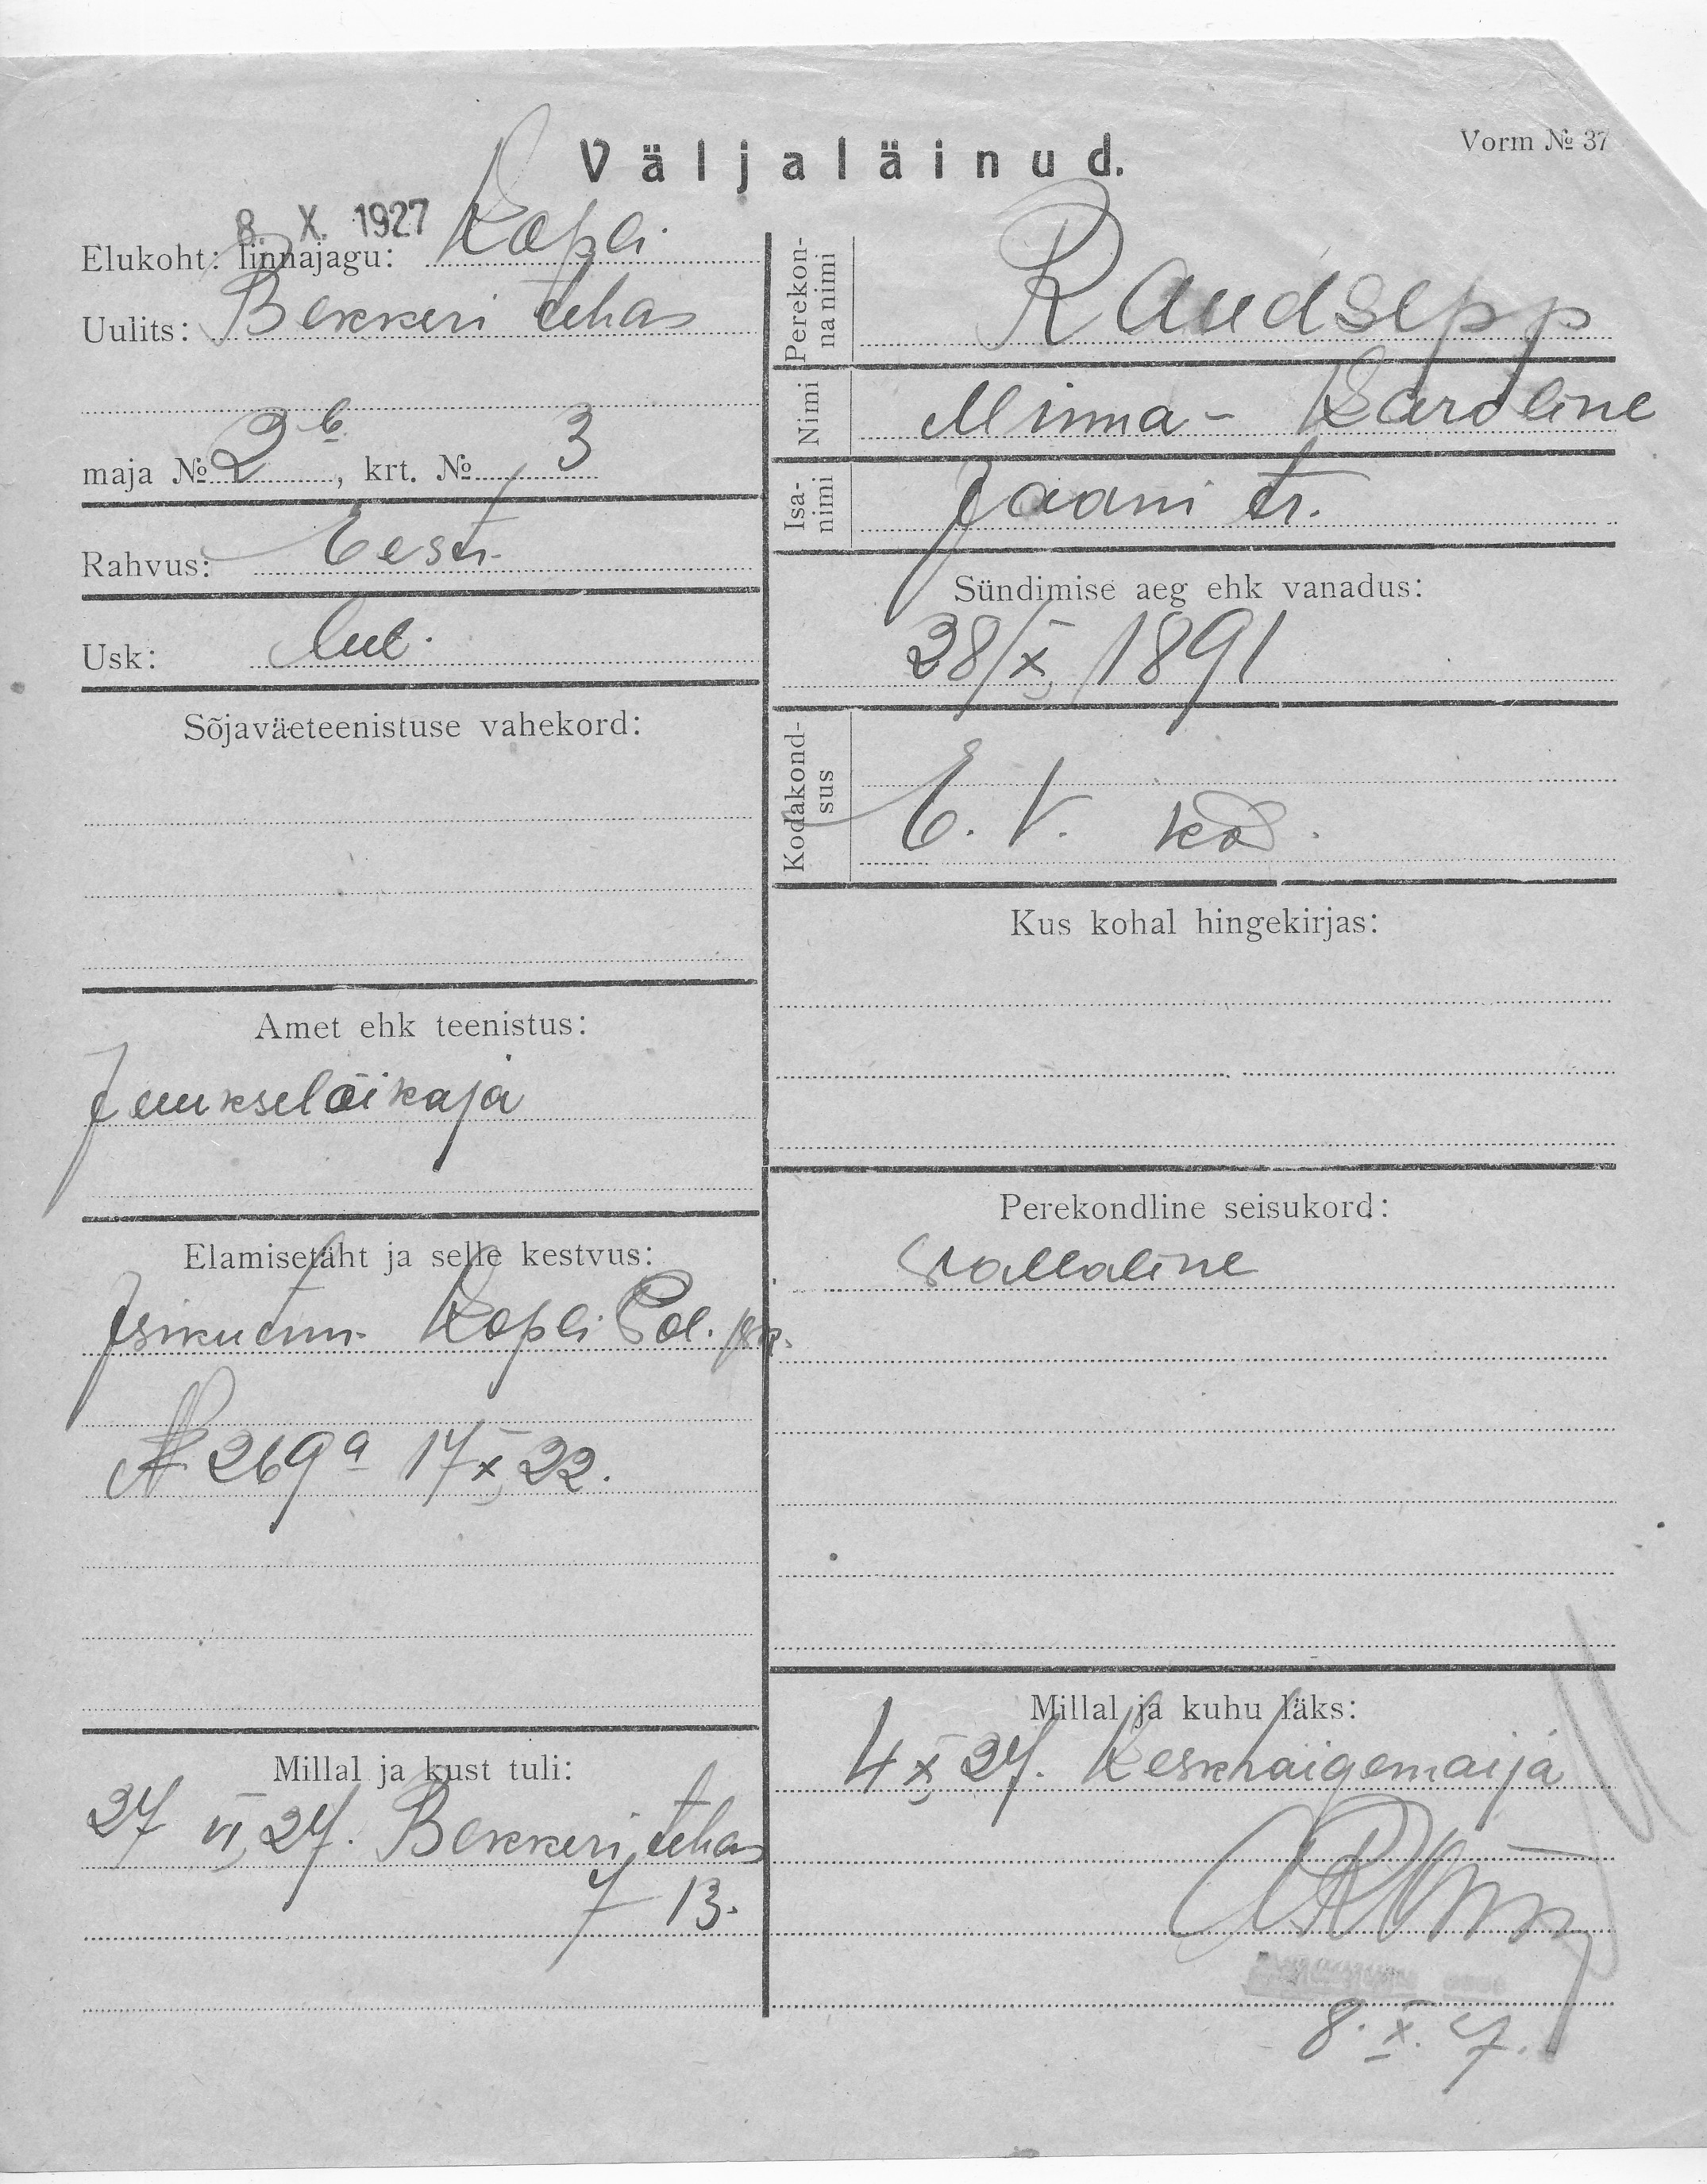 Väljaläinud.
Vorm № 37
8. X. 1927
Elukoht: linnajagu: Kopli
Uulits: Bekkeri tehas
maja № 2 b, krt. № 3
Rahvus: Eesti
Usk: lut.
Sõjaväeteenistuse vahekord:
Amet ehk teenistus:
Juukselõikaja
Elamisetäht ja selle kestvus:
Isikutun. Kopli Pol. jsk.
№ 269a 17 X 22.
Millal ja kust tuli:
27 VI 27. Bekkeri tehas
7 13.
Perekonna nimi
Raudsepp
Nimi
Minna - Karoline
Isanimi
Jaani tr.
Sündimise aeg ehk vanadus:
28/X 1891
Kodakondsus
E. V. kod.
Kus kohal hingekirjas:
Perekondline seisukord:
vallaline
Millal ja kuhu läks:
4 X 27. Keskhaigemaija
8. X. 7.